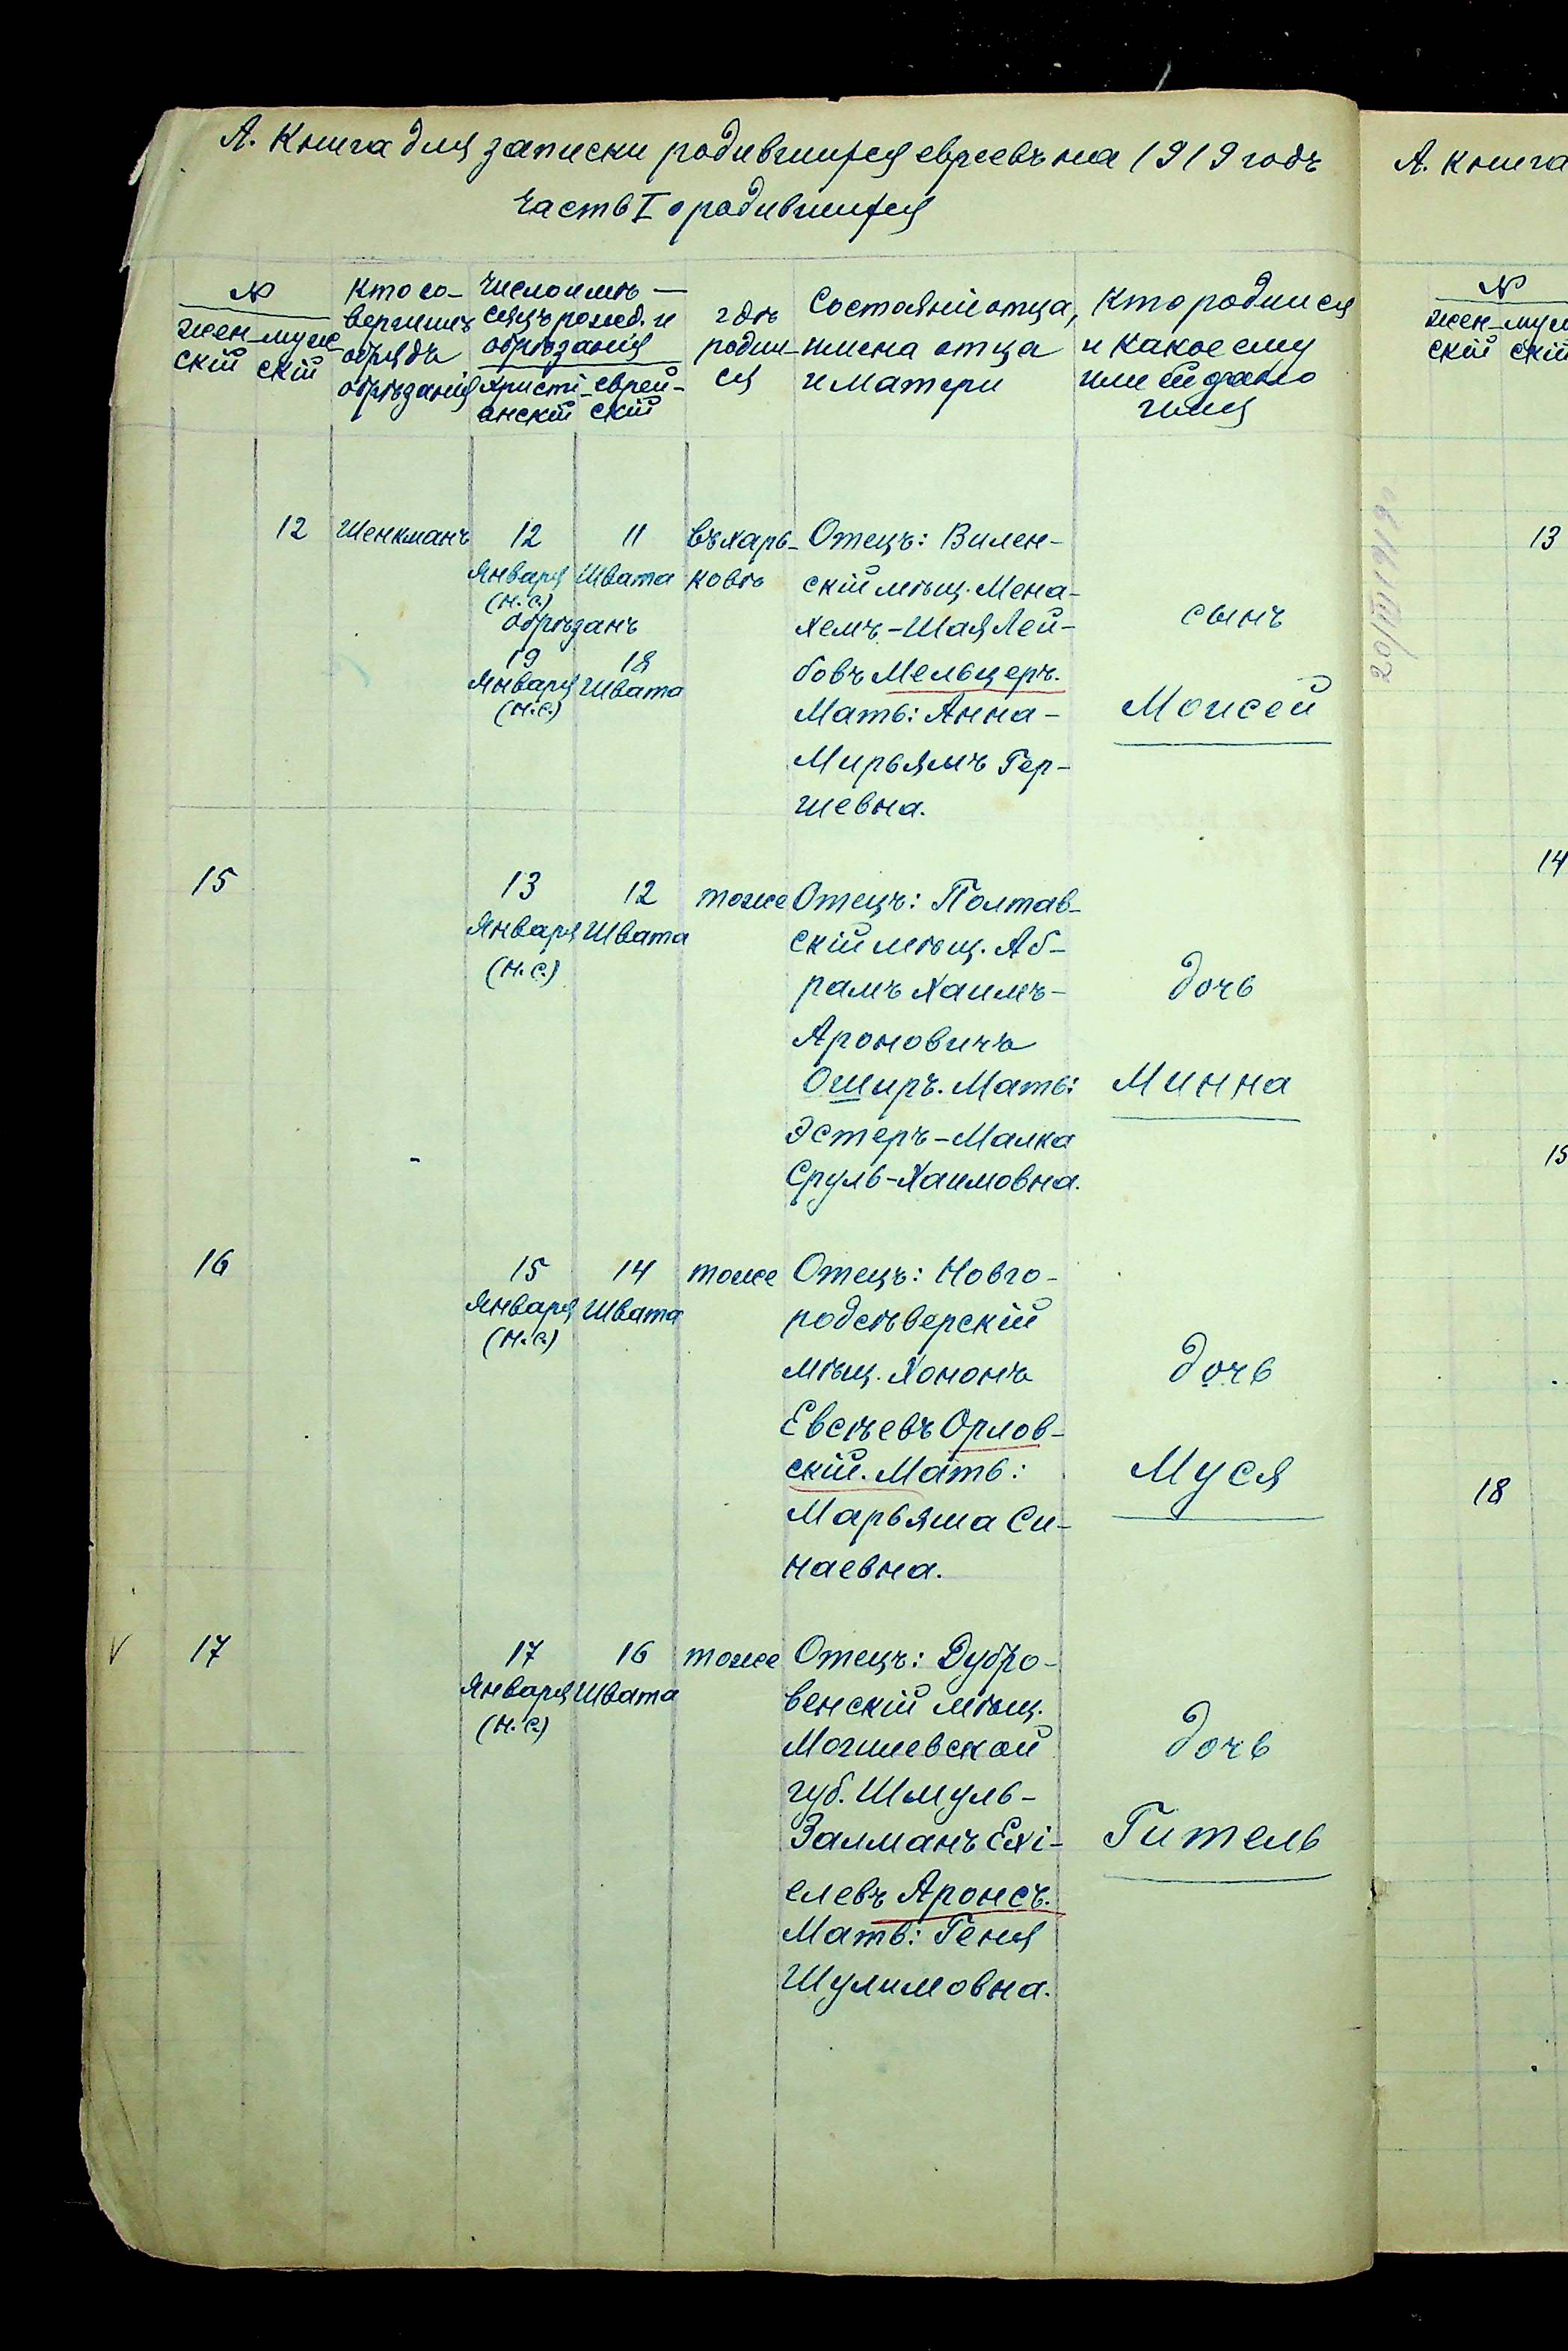 А. Книга для записки родившихся евреевъ на 1919 годъ
Часть I о родившихся
№
жен- муж-
скій скій
Кто со-
вершилъ
обрядъ
обрѣзанія
Число и мѣ-
сяцъ рожд. и
обрѣзанія
Христі- еврей-
анскій скій
гдѣ
родил-
ся
Состояніе отца,
имена отца
и матери
Кто родился
и какое ему
или ей дано
имя
12 Шенкманъ 12 11 въ Харь-
Января Швата ковѣ
(н.с.)
обрѣзанъ
19 18
Января Швата
(н.с.)
Отецъ: Вилен-
скій мѣщ. Мена-
хемъ-Шая Лей-
бовъ Мельцеръ.
Мать: Анна-
Мирьямъ Гер-
шевна.
сынъ
Моисей
15 13 12 тоже
Января Швата
(н.с.)
Отецъ: Полтав-
скій мѣщ. Аб-
рамъ Хаимъ-
Ароновичъ
Оширъ. Мать:
Эстеръ-Малка
Сруль-Хаимовна.
дочь
Минна
16 15 14 тоже
Января Швата
(н.с.)
Отецъ: Новго-
родсѣверскій
мѣщ. Хононъ
Евсѣевъ Орлов-
скій. Мать:
Марьяша Си-
наевна.
дочь
Муся
V 17 17 16 тоже
Января Швата
(н.с.)
Отецъ: Дубро-
венскій мѣщ.
Могилевской
губ. Шмуль-
Залманъ Ехі-
елевъ Аронсъ.
Мать: Геня
Шулимовна.
дочь
Гитель
А. Книга
№
жен- муж
скій скій
20/III 1919
13
14
15
18